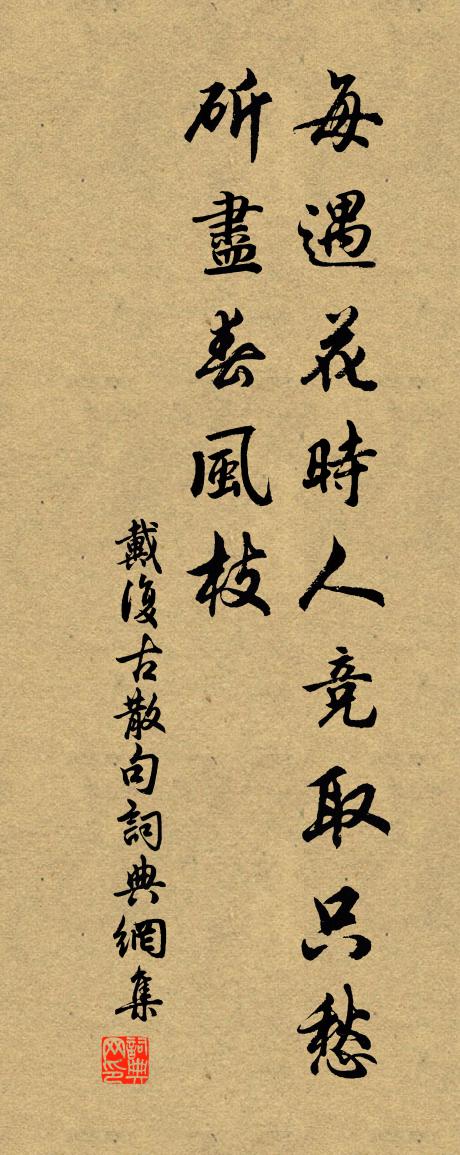 每遇花時人竞取只愁
斫盡春風枝
戴復古散句詞典網集
詞典网印